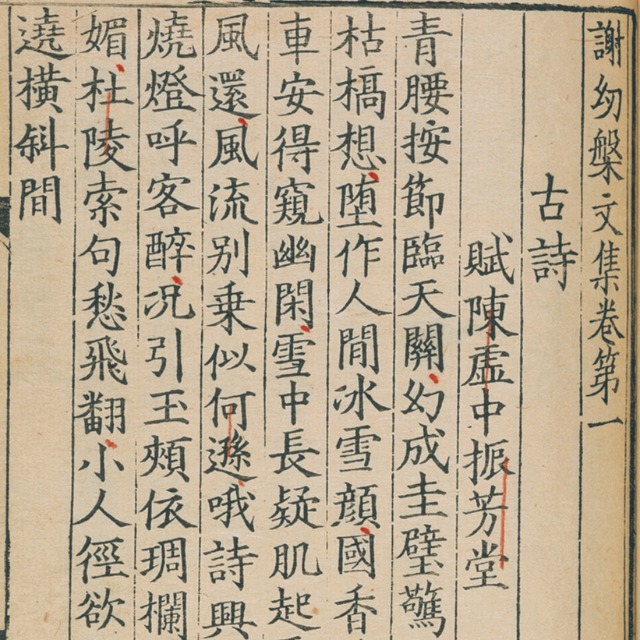 謝幼槃文集卷第一
古詩
賦陳虛中振芳堂
青腰按節臨天關幻成圭璧驚
枯槁想墮作人間冰雪顏國香
車安得窺幽閑雪中長疑肌起
風還風流别乗似何遜哦詩興
燒燈呼客醉况引玉頰依琱欄
媚杜陵索句愁飛翻小人徑欲
遶橫斜間